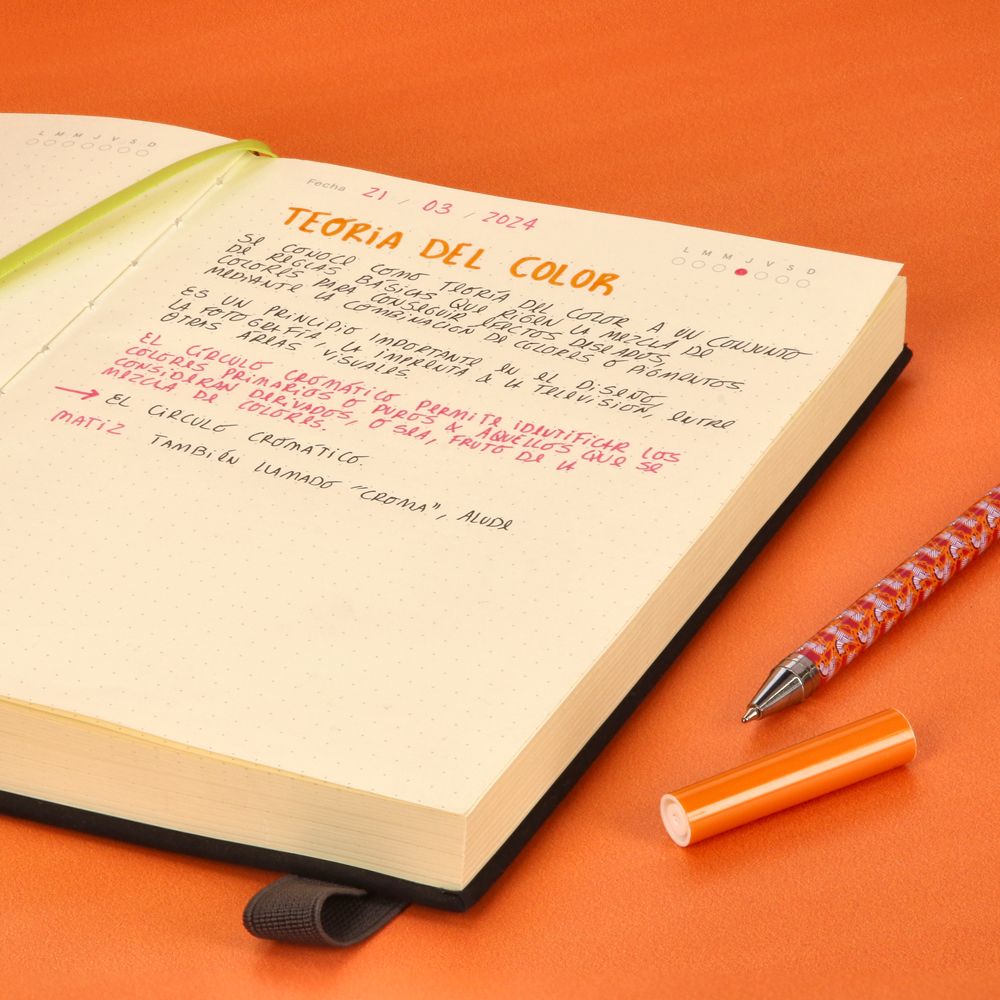 L M M J V S D
Fecha 21 / 03 / 2024
L M M J V S D
TEORÍA DEL COLOR
SE CONOCE COMO TEORÍA DEL COLOR A UN CONJUNTO
DE REGLAS BÁSICAS QUE RIGEN LA MEZCLA DE
COLORES PARA CONSEGUIR EFECTOS DISEADOS,
MEDIANTE LA COMBINACIÓN DE COLORES O PIGMENTOS
ES UN PRINCIPIO IMPORTANTE EN EL DISEÑO,
LA FOTOGRAFÍA, LA IMPRENTA & LA TELEVISIÓN, ENTRE
OTRAS ÁREAS VISUALES.
EL CÍRCULO CROMÁTICO PERMITE IDENTIFICAR LOS
COLORES PRIMARIOS O PUROS & AQUELLOS QUE SE
CONSIDERAN DERIVADOS, O SEA, FRUTO DE LA
MEZCLA DE COLORES.
→ EL CÍRCULO CROMÁTICO.
MATIZ TAMBIÉN LLAMADO "CROMA", ALUDE